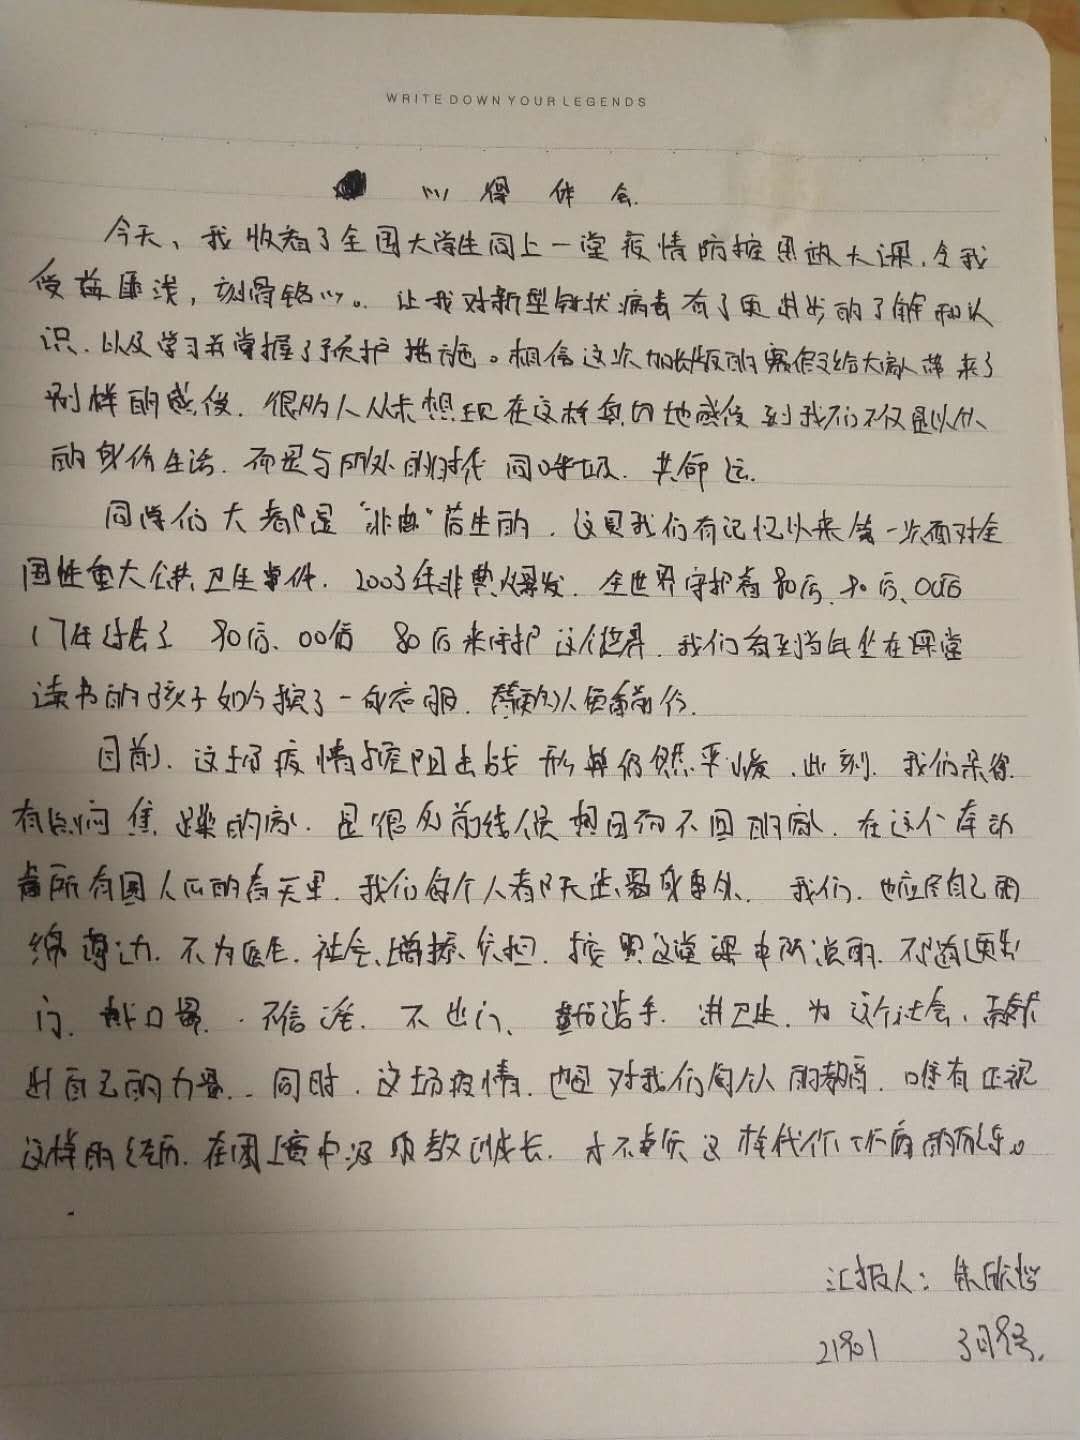 WRITE DOWN YOUR LEGENDS
心得体会
今天、我收看了全国大学生同上一堂疫情防控思政大课,令我
受益匪浅,刻骨铭心。让我对新型冠状病毒有了更进步的了解和认
识.以及学习并掌握了预护措施。相信这次加长版的寒假给大家带来了
别样的感受.很多人从未想现在这样真切地感受到我们不仅是以个人
的身份生活.而是与所处的时代同呼吸.共命运.
同学们大都是"非典"后生的.这是我们有记忆以来第一次面对全
国性重大公共卫生事件.2003年非典爆发.全世界守护着80后、90后、00后
17年过去了 90后、00后 80后来守护这个世界.我们看到当年坐在课堂
读书的孩子如今换了一身衣服.替我们负重前行.
目前.这场疫情防控阻击战形势仍然严峻.此刻.我们呆得
有点闷焦躁的家.是很多前线人员想回而不回的家.在这个牵动
着所有国人心的春天里.我们每个人都无法置身事外.我们.也应尽自己的
绵薄力.不为医生.社会、增添负担.按照这堂课中所说的.不随便出
门.戴口罩.不信谣.不出门、勤洗手.讲卫生.为这个社会、奉献
出自己的力量.同时.这场疫情.也是对我们每个人的教育.唯有正视
这样的经历.在困境中汲取教训成长.才不辜负这样代价
汇报人:朱欣怡
21901 3月9号.